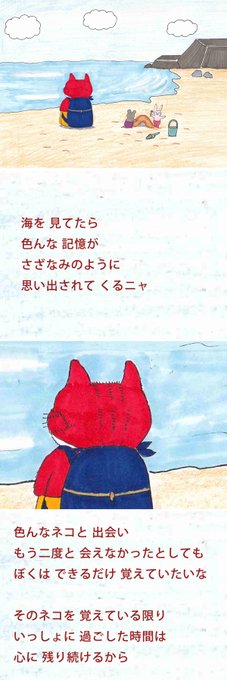 海を 見てたら
色んな 記憶が
さざなみのように
思い出されて くるニャ
色んなネコと 出会い
もう二度と 会えなかったとしても
ぼくは できるだけ 覚えていたいな
そのネコを 覚えている限り
いっしょに 過ごした時間は
心に 残り続けるから